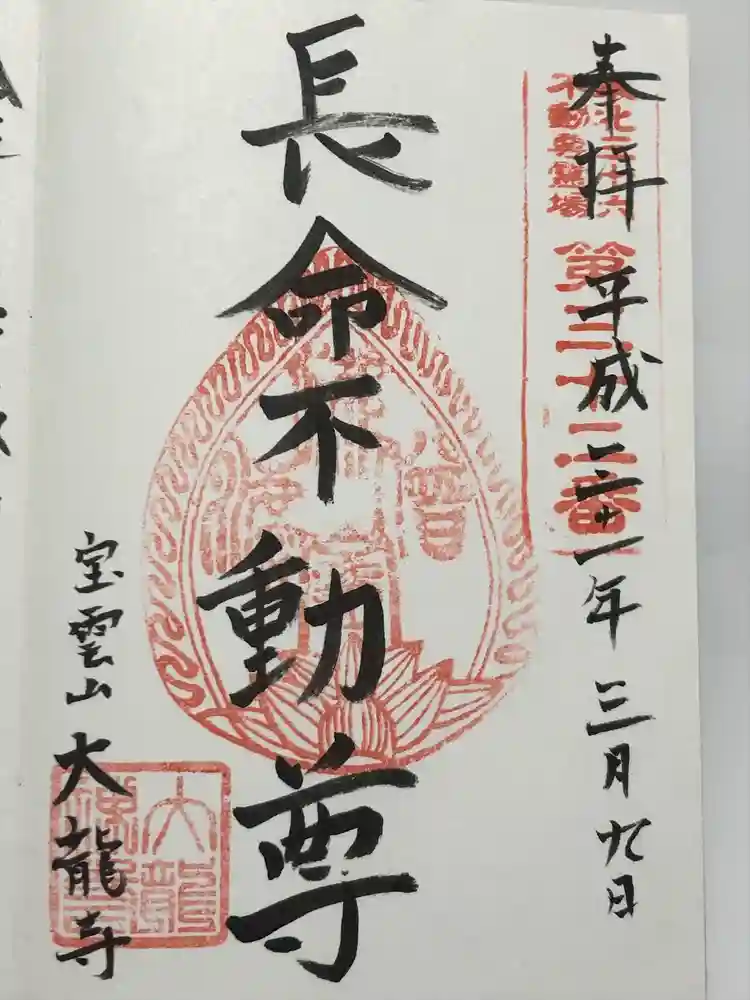 奉拝
平成二十一年三月九日
不動尊霊場
第三十二番
長命不動尊
宝雲山
大龍寺
大龍